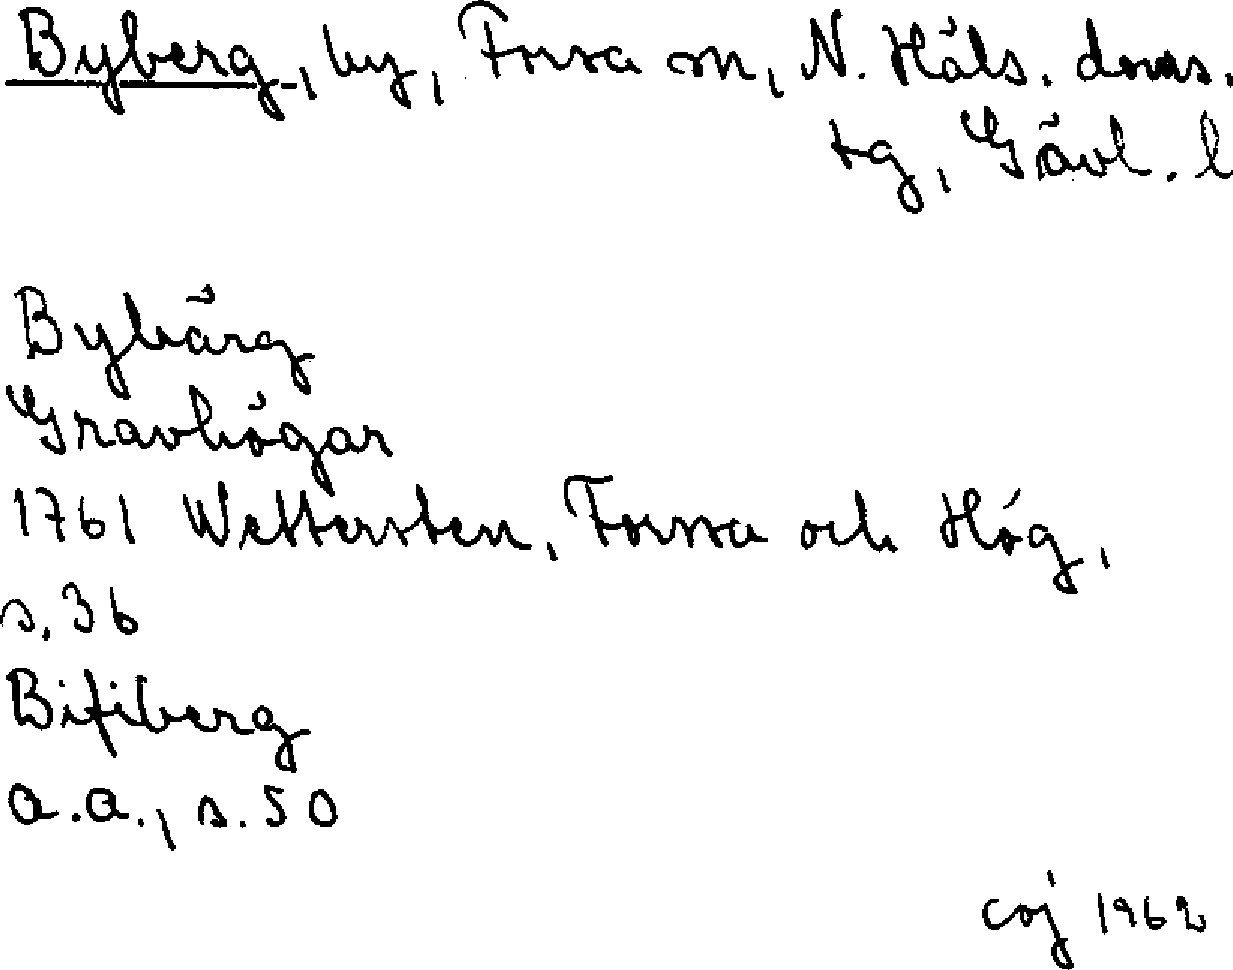 Byberg, by, Forsa sn, N. Häls. doms.
tg, Gävl. l
Bybärg
Gravhögar
1761 Wettersten, Forssa och Hög,
s. 36
Bifiberg
a.a., s. 50
coj 1962